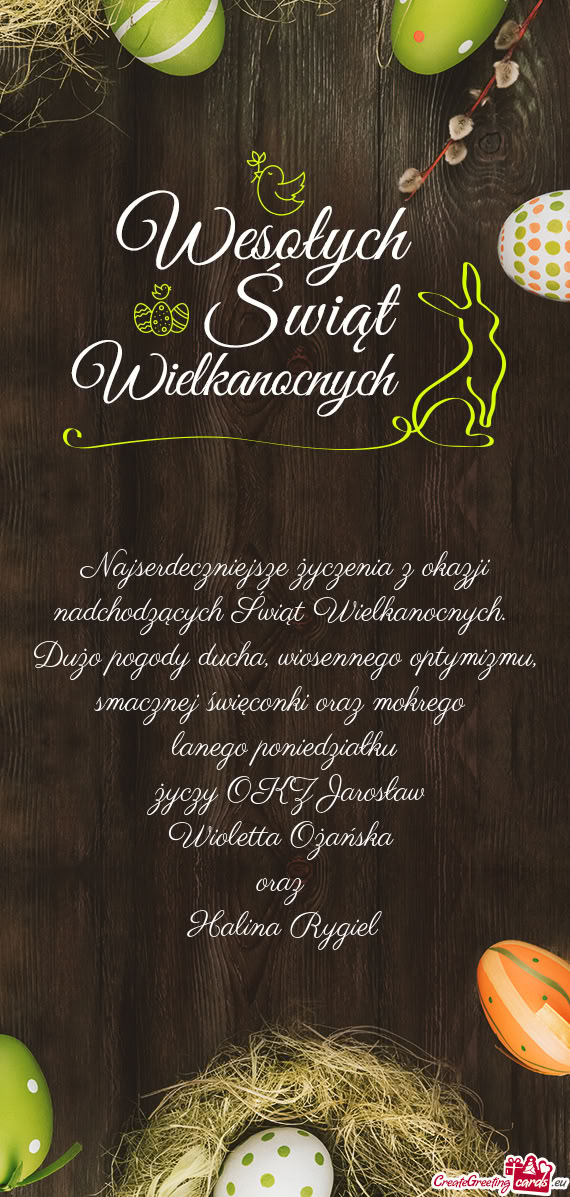 Wesołych
Świąt
Wielkanocnych
Najserdeczniejsze życzenia z okazji
nadchodzących Świąt Wielkanocnych.
Dużo pogody ducha, wiosennego optymizmu,
smacznej święconki oraz mokrego
lanego poniedziałku
życzy OKZ Jarosław
Wioletta Ożańska
oraz
Halina Rygiel
CreateGreeting cards .eu